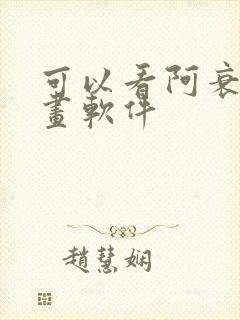 可以看阿衰
畫軟件
趙慧娴